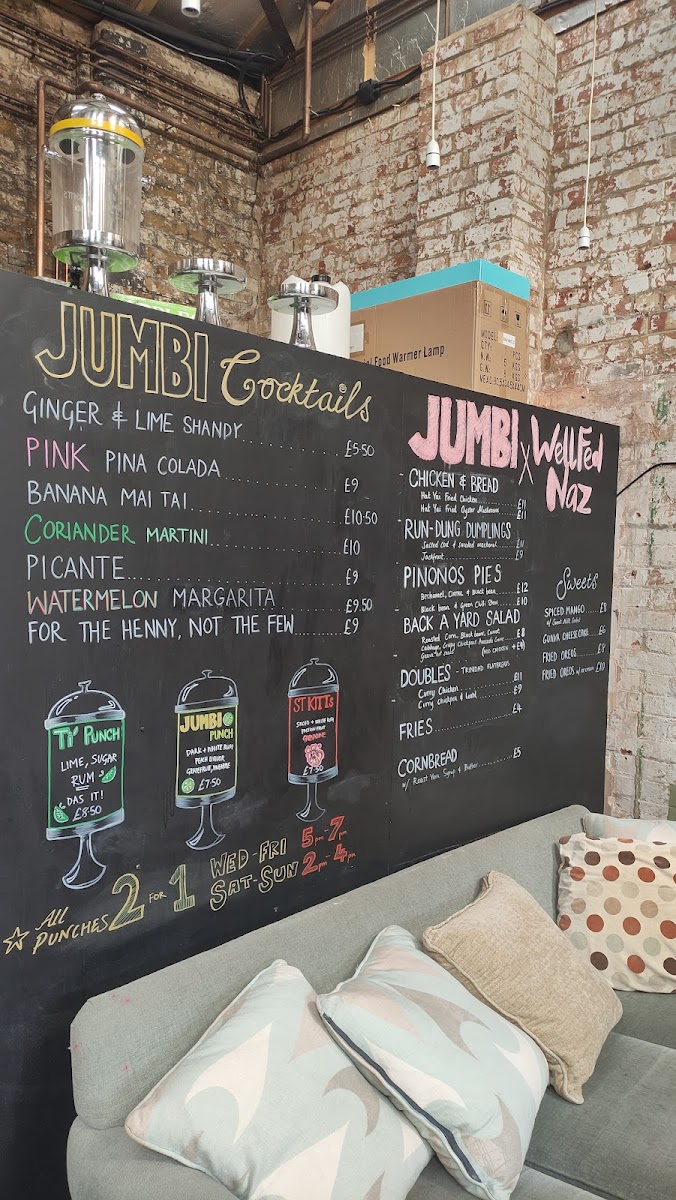 Food Warmer Lamp
MODEL
QTY. PCS
N.W. KGS
G.W. KGS
JUMBI Cocktails
GINGER & LIME SHANDY £5.50
PINK PINA COLADA £9
BANANA MAI TAI £10.50
CORIANDER MARTINI £10
PICANTE £9
WATERMELON MARGARITA £9.50
FOR THE HENNY, NOT THE FEW £9
TI' PUNCH
LIME, SUGAR
RUM
DAS IT!
£8.50
JUMBI
PUNCH
DARK + WHITE RUM
PEACH LIQUEUR
£7.50
ST KITTS
£7.50
ALL
PUNCHES 2 FOR 1
WED-FRI 5pm-7pm
SAT-SUN 2pm-4pm
JUMBI X WellFed
Naz
CHICKEN & BREAD
Hat Yai Fried Chicken £11
Hat Yai Fried Oyster Mushroom £11
RUN-DUNG DUMPLINGS
Salted Cod & smoked mackerel £11
Jackfruit £9
PINONOS PIES
Bechamel, Cheese & Braised beef £12
Black bean & Green Chilli Stew £10
BACK A YARD SALAD
Roasted Corn, Black beans, Carrot £8
Cabbage, Crispy Chickpeas Avocado Cream
(ADD CHICKEN + £4)
DOUBLES - TRINIDAD FLATBREADS
Curry Chicken £11
Curry Chickpea & Lentil £9
FRIES £4
CORNBREAD £5
w/ Roast Yam, Syrup & Butter
Sweets
SPICED MANGO £8
w/ Goat Milk Salad
GUAVA CHEESECAKE £6
FRIED OREOS £8
FRIED OREOS w/ ice cream £10